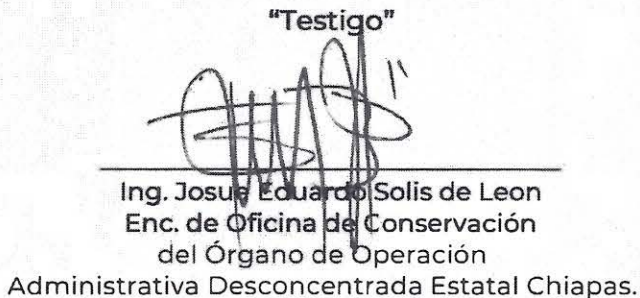 "Testigo"
Ing. Josue Eduardo Solis de Leon
Enc. de Oficina de Conservación
del Órgano de Operación
Administrativa Desconcentrada Estatal Chiapas.